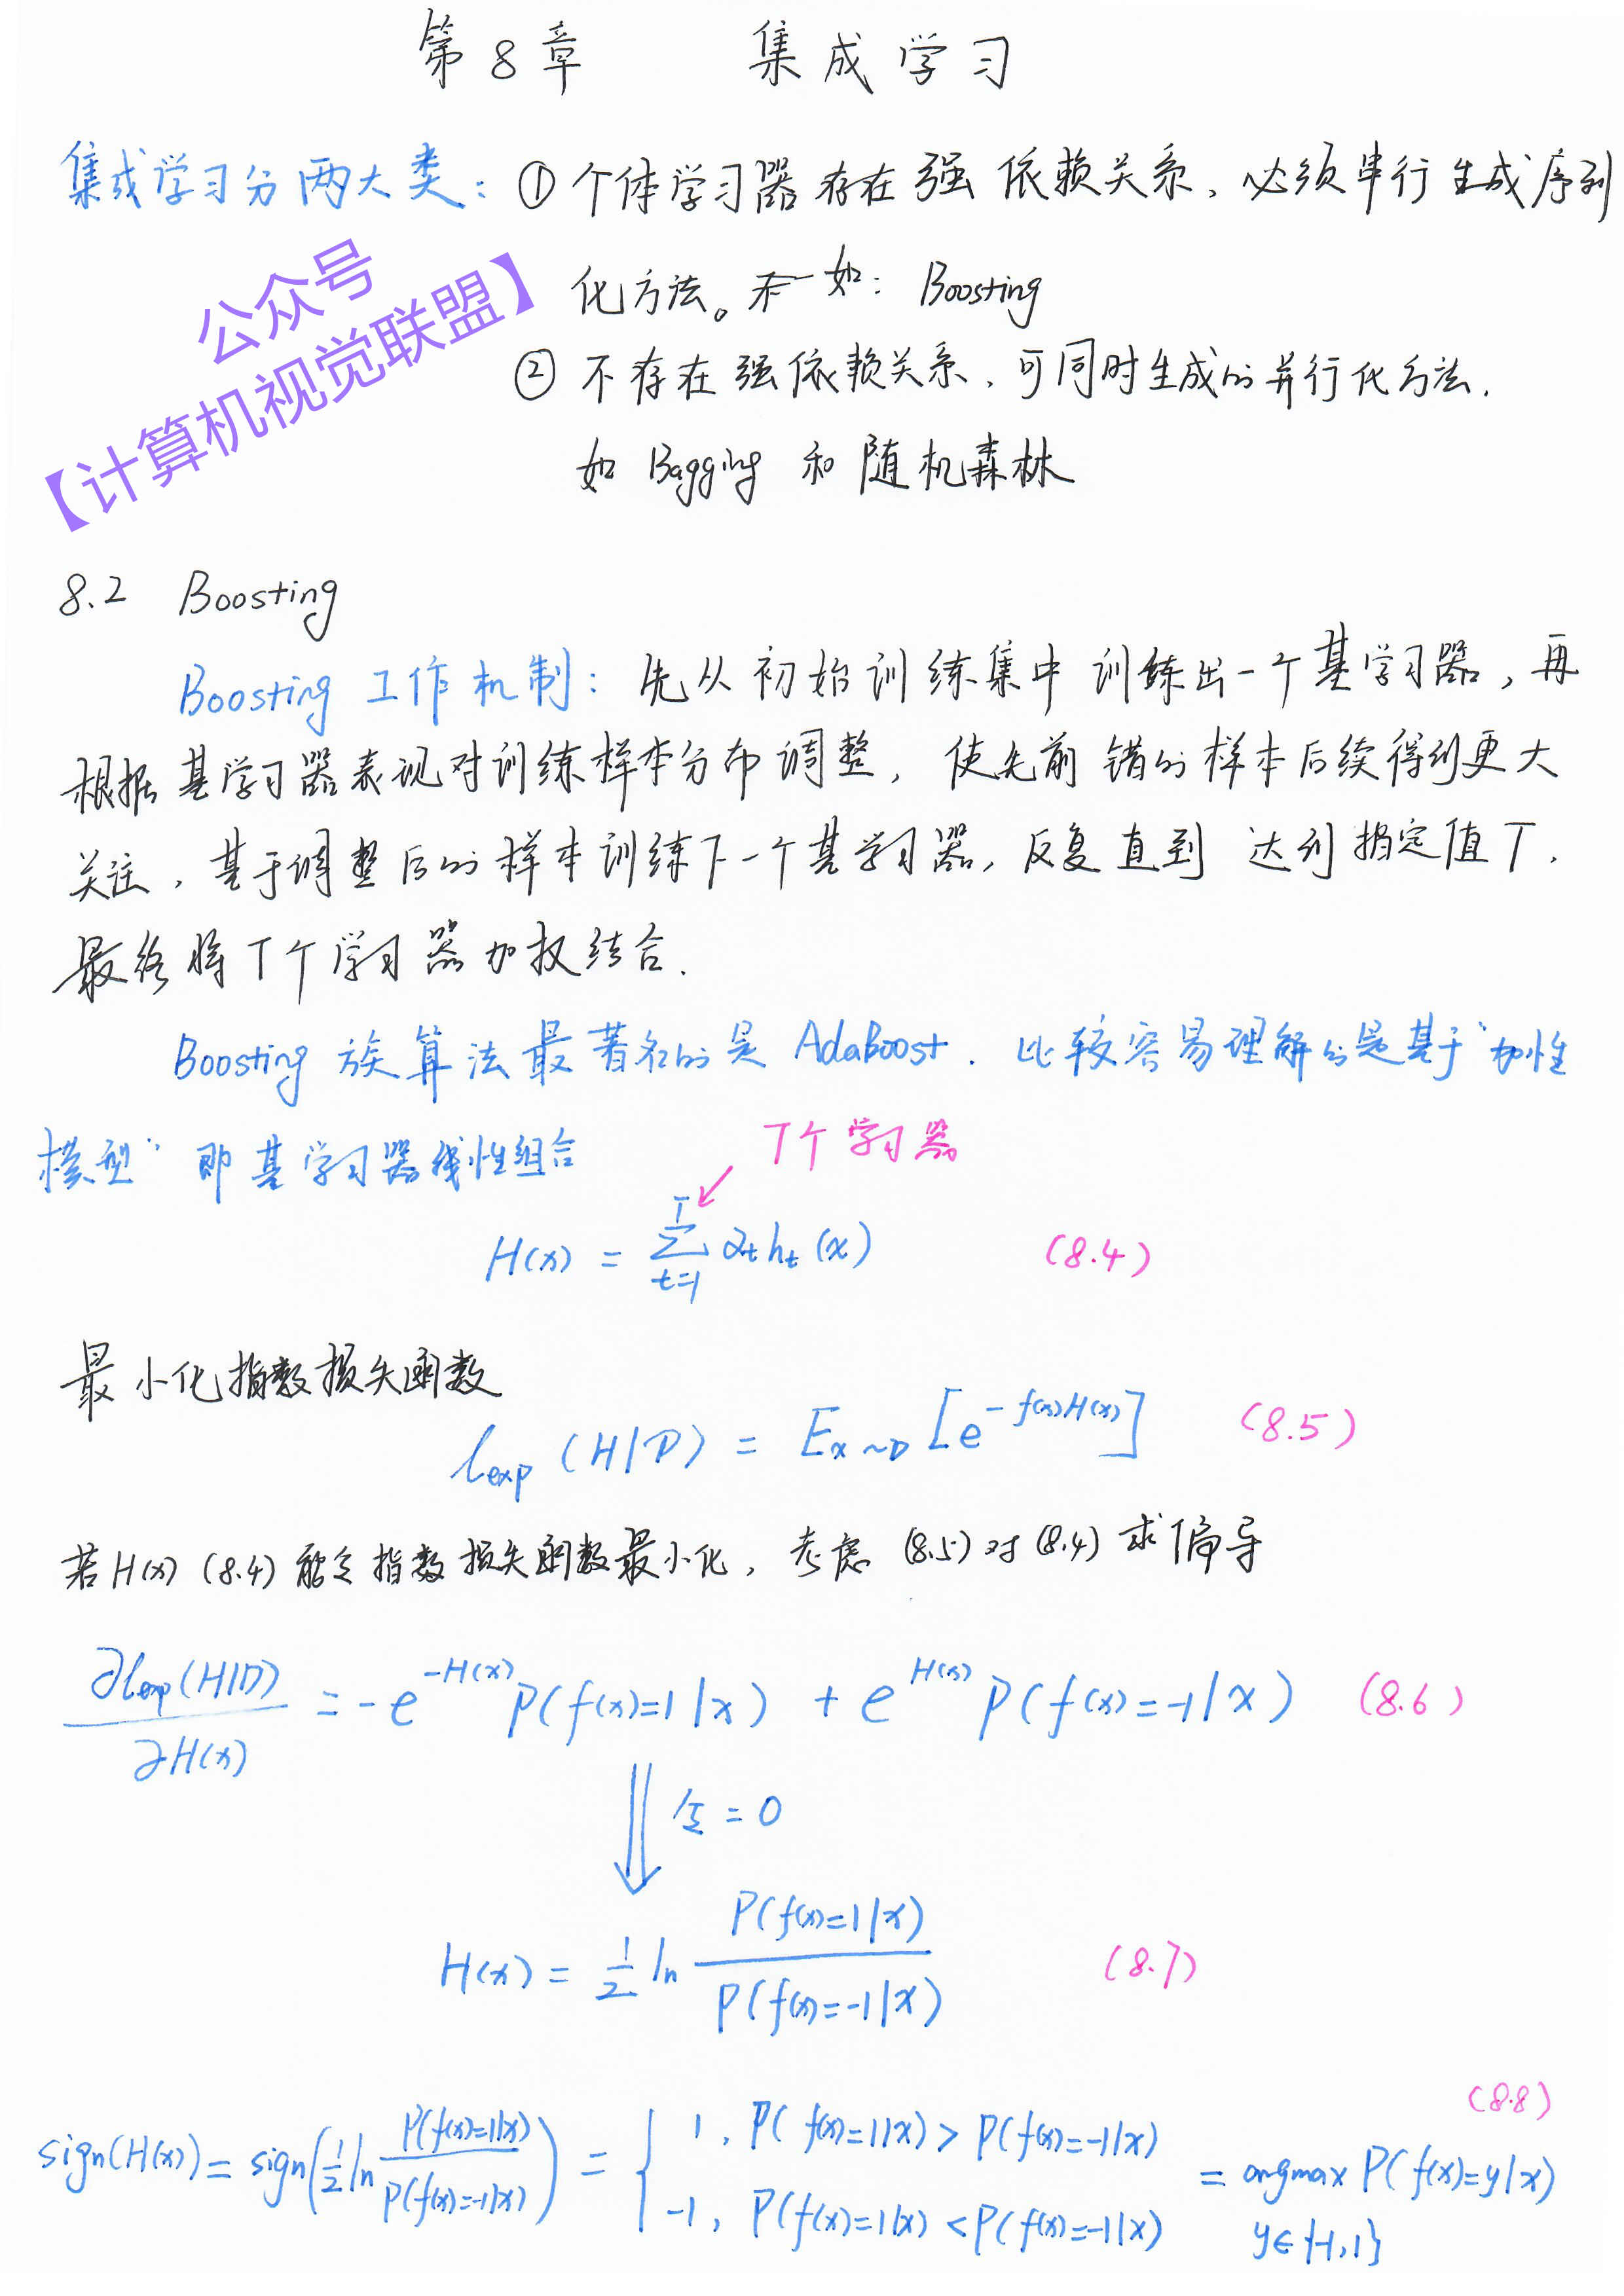 第8章 集成学习
集成学习分两大类：① 个体学习器存在强依赖关系，必须串行生成序列
化方法。如：Boosting
② 不存在强依赖关系，可同时生成的并行化方法.
如 Bagging 和随机森林
公众号
【计算机视觉联盟】
8.2 Boosting
Boosting 工作机制：先从初始训练集中训练出一个基学习器，再
根据基学习器表现对训练样本分布调整，使先前错的样本后续得到更大
关注，基于调整后的样本训练下一个基学习器，反复直到达到指定值T，
最终将T个学习器加权结合.
Boosting 族算法最著名的是 AdaBoost. 比较容易理解的是基于"加性
模型" 即基学习器线性组合
T个学习器
H(x) = ∑_{t=1}^{T} α_t h_t(x) (8.4)
最小化指数损失函数
ℓ_exp(H|D) = E_{x∼D}[e^{-f(x)H(x)}] (8.5)
若H(x) (8.4) 能令指数损失函数最小化，考虑 (8.5)对(8.4) 求偏导
∂ℓ_exp(H|D)/∂H(x) = -e^{-H(x)} P(f(x)=1|x) + e^{H(x)} P(f(x)=-1|x) (8.6)
令=0
H(x) = 1/2 ln P(f(x)=1|x)/P(f(x)=-1|x) (8.7)
(8.8)
sign(H(x)) = sign(1/2 ln P(f(x)=1|x)/P(f(x)=-1|x)) = { 1, P(f(x)=1|x) > P(f(x)=-1|x)
-1, P(f(x)=1|x) < P(f(x)=-1|x)
= argmax P(f(x)=y|x)
y∈{-1,1}